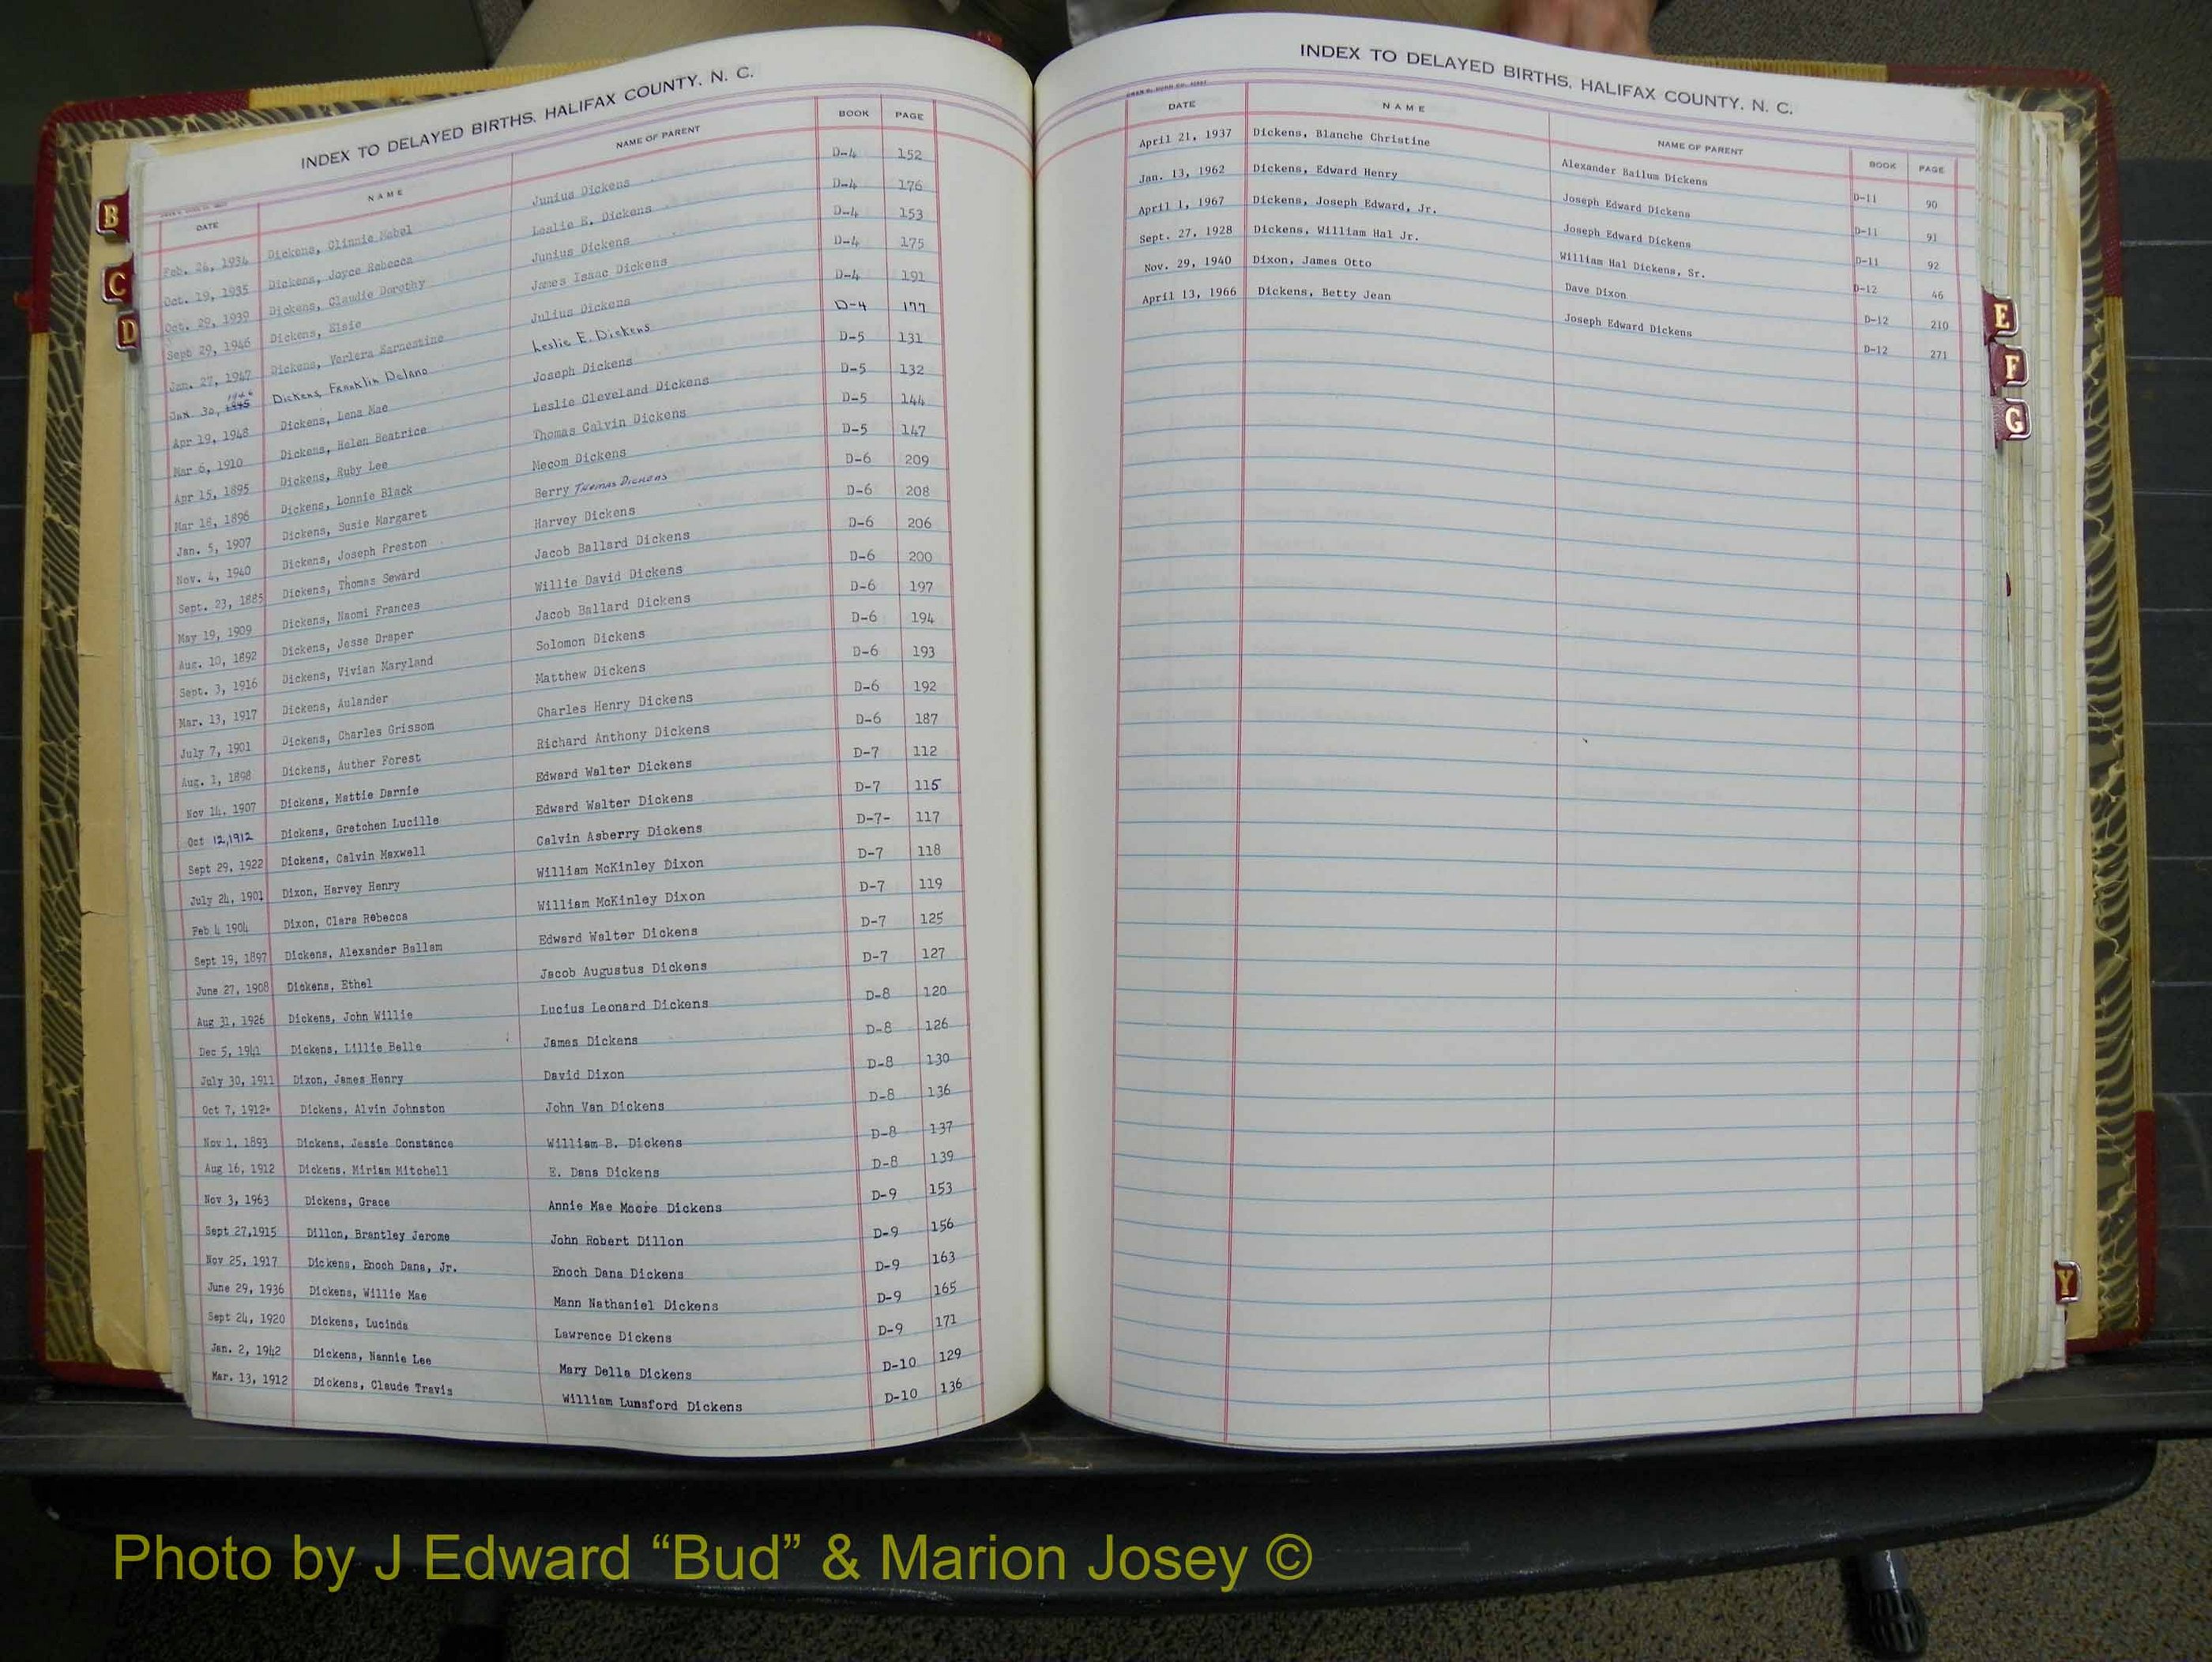 INDEX TO DELAYED BIRTHS, HALIFAX COUNTY, N. C.
DATE NAME NAME OF PARENT BOOK PAGE
Feb. 26, 1934 Dickens, Clinnie Mabel Junius Dickens D-4 152
Oct. 19, 1935 Dickens, Joyce Rebecca Leslie E. Dickens D-4 176
Oct. 29, 1939 Dickens, Claudie Dorothy Junius Dickens D-4 153
Sept 29, 1946 Dickens, Elsie James Isaac Dickens D-4 175
Jan. 27, 1947 Dickens, Verlera Earnestine Julius Dickens D-4 191
Jan. 30, 1945 Dickens, Franklin Delano Leslie E. Dickens D-4 177
Apr 19, 1948 Dickens, Lena Mae Joseph Dickens D-5 131
Mar 6, 1910 Dickens, Helen Beatrice Leslie Cleveland Dickens D-5 132
Apr 15, 1895 Dickens, Ruby Lee Thomas Calvin Dickens D-5 144
Mar 18, 1896 Dickens, Lonnie Black Mecom Dickens D-5 147
Jan. 5, 1907 Dickens, Susie Margaret Berry Thomas Dickens D-6 209
Nov. 4, 1940 Dickens, Joseph Preston Harvey Dickens D-6 208
Sept. 23, 1885 Dickens, Thomas Seward Jacob Ballard Dickens D-6 206
May 19, 1909 Dickens, Naomi Frances Willie David Dickens D-6 200
Aug. 10, 1892 Dickens, Jesse Draper Jacob Ballard Dickens D-6 197
Sept. 3, 1916 Dickens, Vivian Maryland Solomon Dickens D-6 194
Mar. 13, 1917 Dickens, Aulander Matthew Dickens D-6 193
July 7, 1901 Dickens, Charles Grissom Charles Henry Dickens D-6 192
Aug. 1, 1898 Dickens, Auther Forest Richard Anthony Dickens D-6 187
Nov 14, 1907 Dickens, Mattie Darnie Edward Walter Dickens D-7 112
Oct 12,1912 Dickens, Gretchen Lucille Edward Walter Dickens D-7 115
Sept 29, 1922 Dickens, Calvin Maxwell Calvin Asberry Dickens D-7- 117
July 24, 1901 Dixon, Harvey Henry William McKinley Dixon D-7 118
Feb 4 1904 Dixon, Clara Rebecca William McKinley Dixon D-7 119
Sept 19, 1897 Dickens, Alexander Ballam Edward Walter Dickens D-7 125
June 27, 1908 Dickens, Ethel Jacob Augustus Dickens D-7 127
Aug 31, 1926 Dickens, John Willie Lucius Leonard Dickens D-8 120
Dec 5, 1941 Dickens, Lillie Belle James Dickens D-8 126
July 30, 1911 Dixon, James Henry David Dixon D-8 130
Oct 7, 1912 Dickens, Alvin Johnston John Van Dickens D-8 136
Nov 1, 1893 Dickens, Jessie Constance William B. Dickens D-8 137
Aug 16, 1912 Dickens, Miriam Mitchell E. Dana Dickens D-8 139
Nov 3, 1963 Dickens, Grace Annie Mae Moore Dickens D-9 153
Sept 27,1915 Dillon, Brantley Jerome John Robert Dillon D-9 156
Nov 25, 1917 Dickens, Enoch Dana, Jr. Enoch Dana Dickens D-9 163
June 29, 1936 Dickens, Willie Mae Mann Nathaniel Dickens D-9 165
Sept 24, 1920 Dickens, Lucinda Lawrence Dickens D-9 171
Jan. 2, 1942 Dickens, Nannie Lee Mary Della Dickens D-10 129
Mar. 13, 1912 Dickens, Claude Travis William Lunsford Dickens D-10 136
B
C
D
INDEX TO DELAYED BIRTHS, HALIFAX COUNTY, N. C.
DATE NAME NAME OF PARENT BOOK PAGE
April 21, 1937 Dickens, Blanche Christine Alexander Bailum Dickens D-11 90
Jan. 13, 1962 Dickens, Edward Henry Joseph Edward Dickens D-11 91
April 1, 1967 Dickens, Joseph Edward, Jr. Joseph Edward Dickens D-11 92
Sept. 27, 1928 Dickens, William Hal Jr. William Hal Dickens, Sr. D-12 46
Nov. 29, 1940 Dixon, James Otto Dave Dixon D-12 210
April 13, 1966 Dickens, Betty Jean Joseph Edward Dickens D-12 271
E
F
G
Y
Photo by J Edward “Bud” & Marion Josey ©